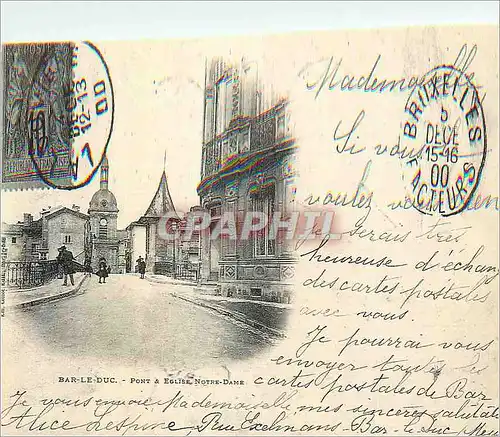 Mademoiselle
BRUXELLES
5
DECE
15-16
00
FACTEURS
Si vous
voulez
je serais très
heureuse d'échang
des cartes postales
avec vous.
Je pourrai vous
envoyer toutes des
cartes postales de Bar
Je vous envoie Mademoiselle, mes sincères salutat
Alice Lespine, Rue Exelmans Bar-le-Duc Meu
12-13
00
GRAPHIL
BAR-LE-DUC. - PONT & EGLISE NOTRE-DAME